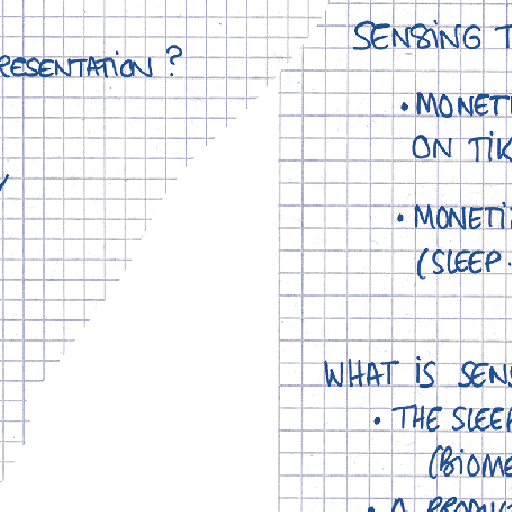 RESENTATION ?
SENSING T
• MONETI
ON TIK
• MONETI
(SLEEP
WHAT IS SENS
• THE SLEEP
(BIOME
• A PRODUCT